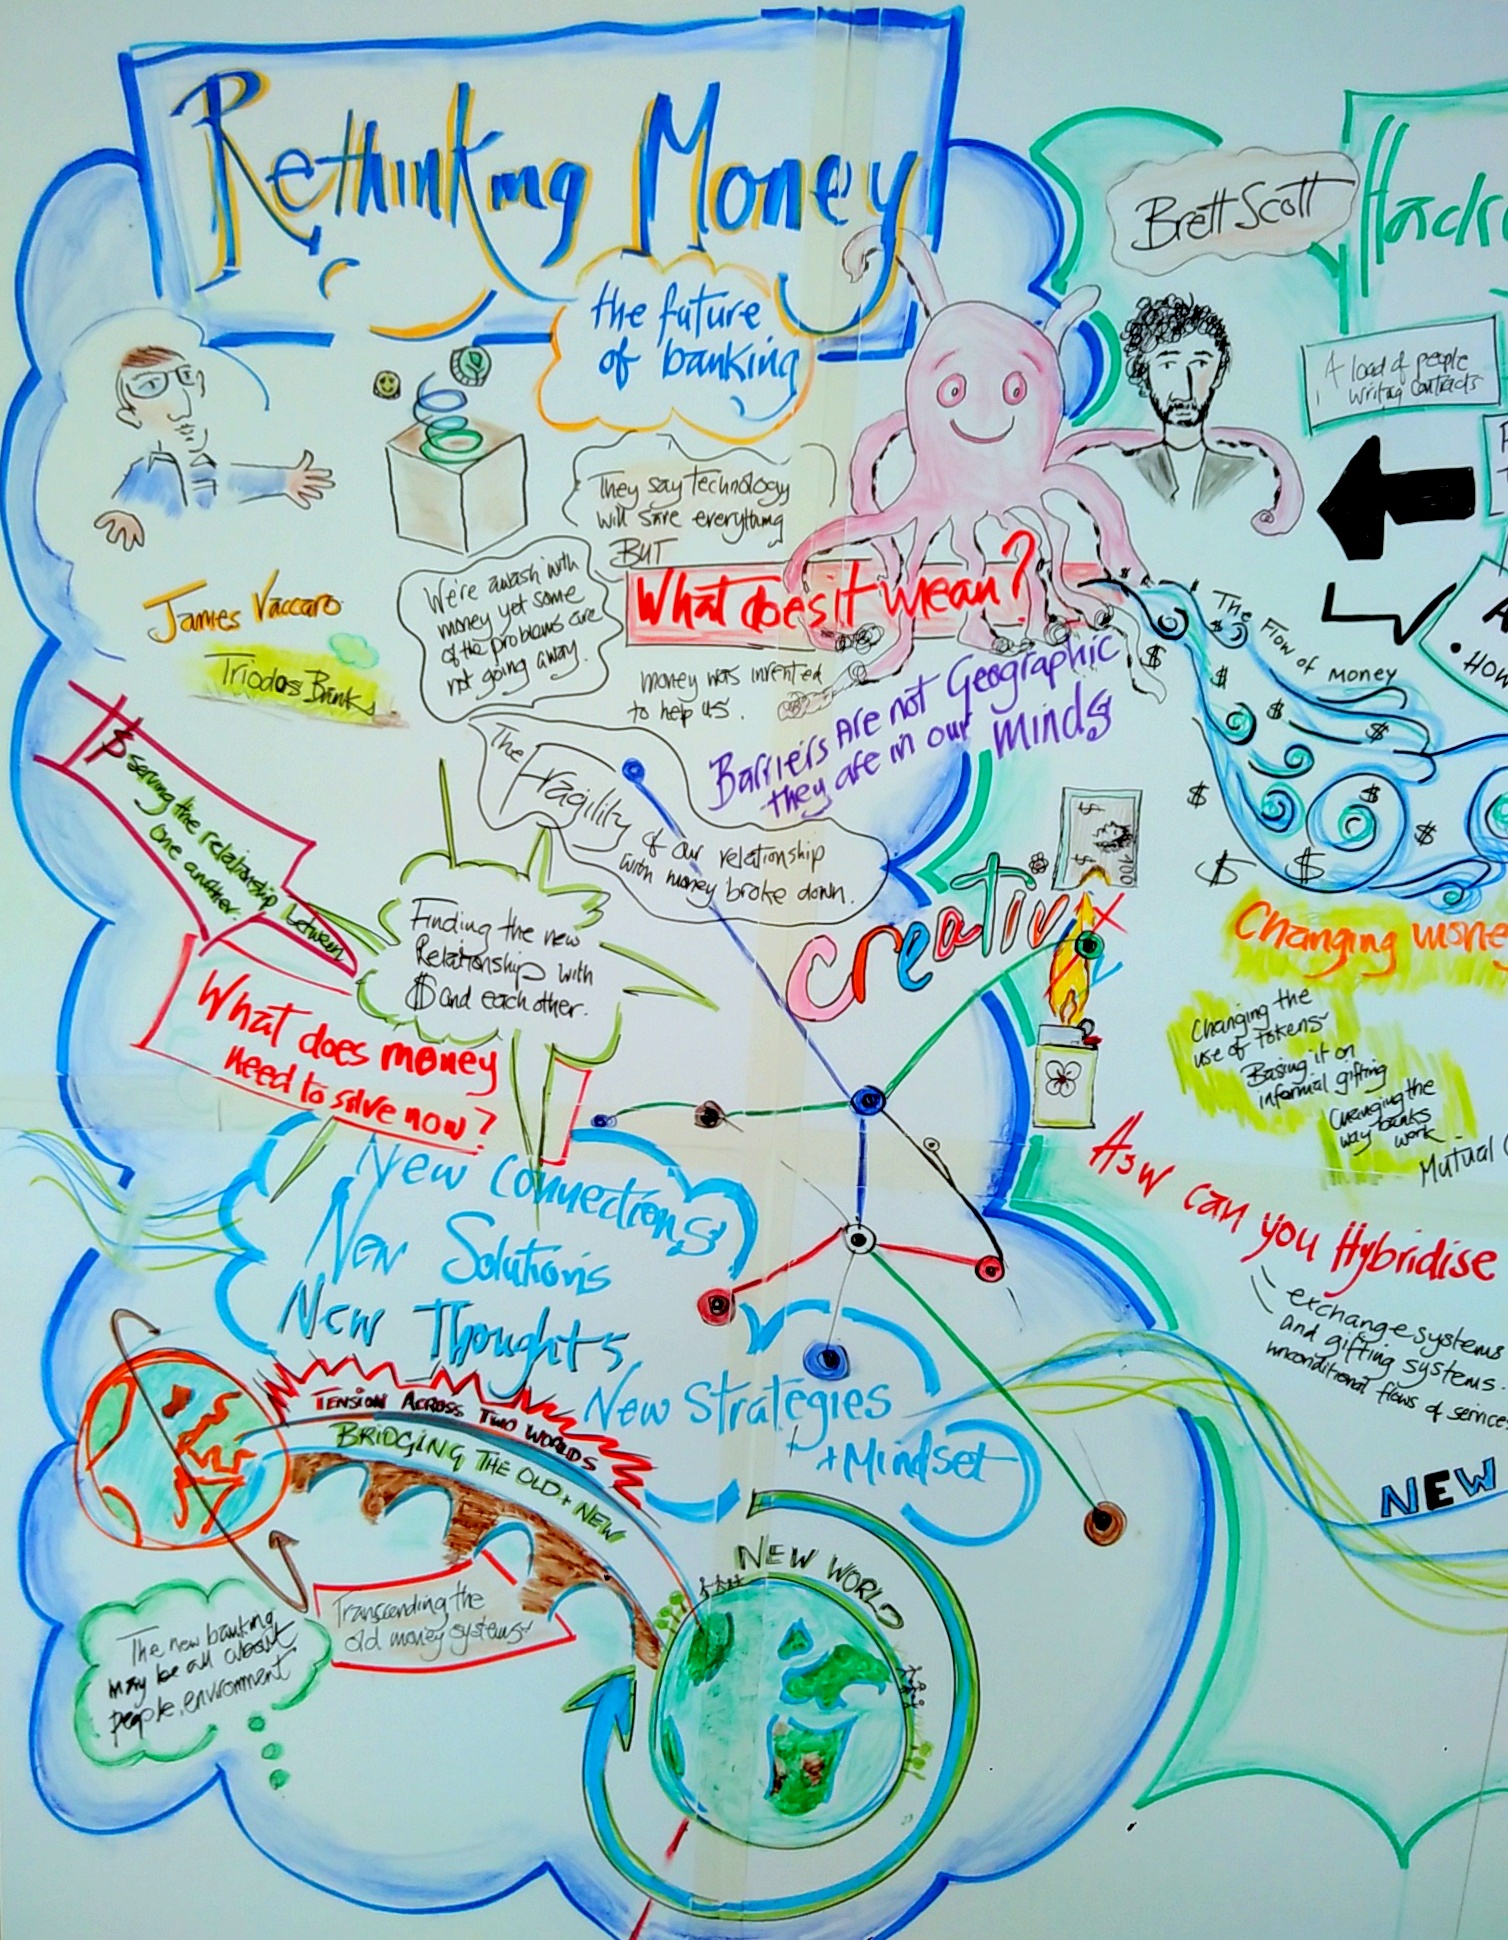 Rethinking Money
the future
of banking
James Vaccaro
Triodos Bank
They say technology
will save everything
BUT
What does it mean?
We're awash with
money yet some
of the problems are
not going away.
money was invented
to help us.
Barriers are not Geographic
they are in our minds
The Fragility of our relationship
with money broke down.
$ serving the relationship between
one another.
Finding the new
Relationship with
$ and each other.
What does money
need to solve now?
New Connections
New Solutions
New Thoughts
New Strategies
+ Mindset
TENSION ACROSS TWO WORLDS
BRIDGING THE OLD + NEW
Transcending the
old money systems
The new banking
may be all about
people, environment
NEW WORLD
Brett Scott
A load of people
writing contracts
The Flow of Money
HOW
creativ
100
Changing mone
Changing the
use of tokens
Basing it on
informal gifting
Changing the
way banks
work
Mutual C
How can you Hybridise
exchange systems
and gifting systems.
unconditional flows of service
NEW